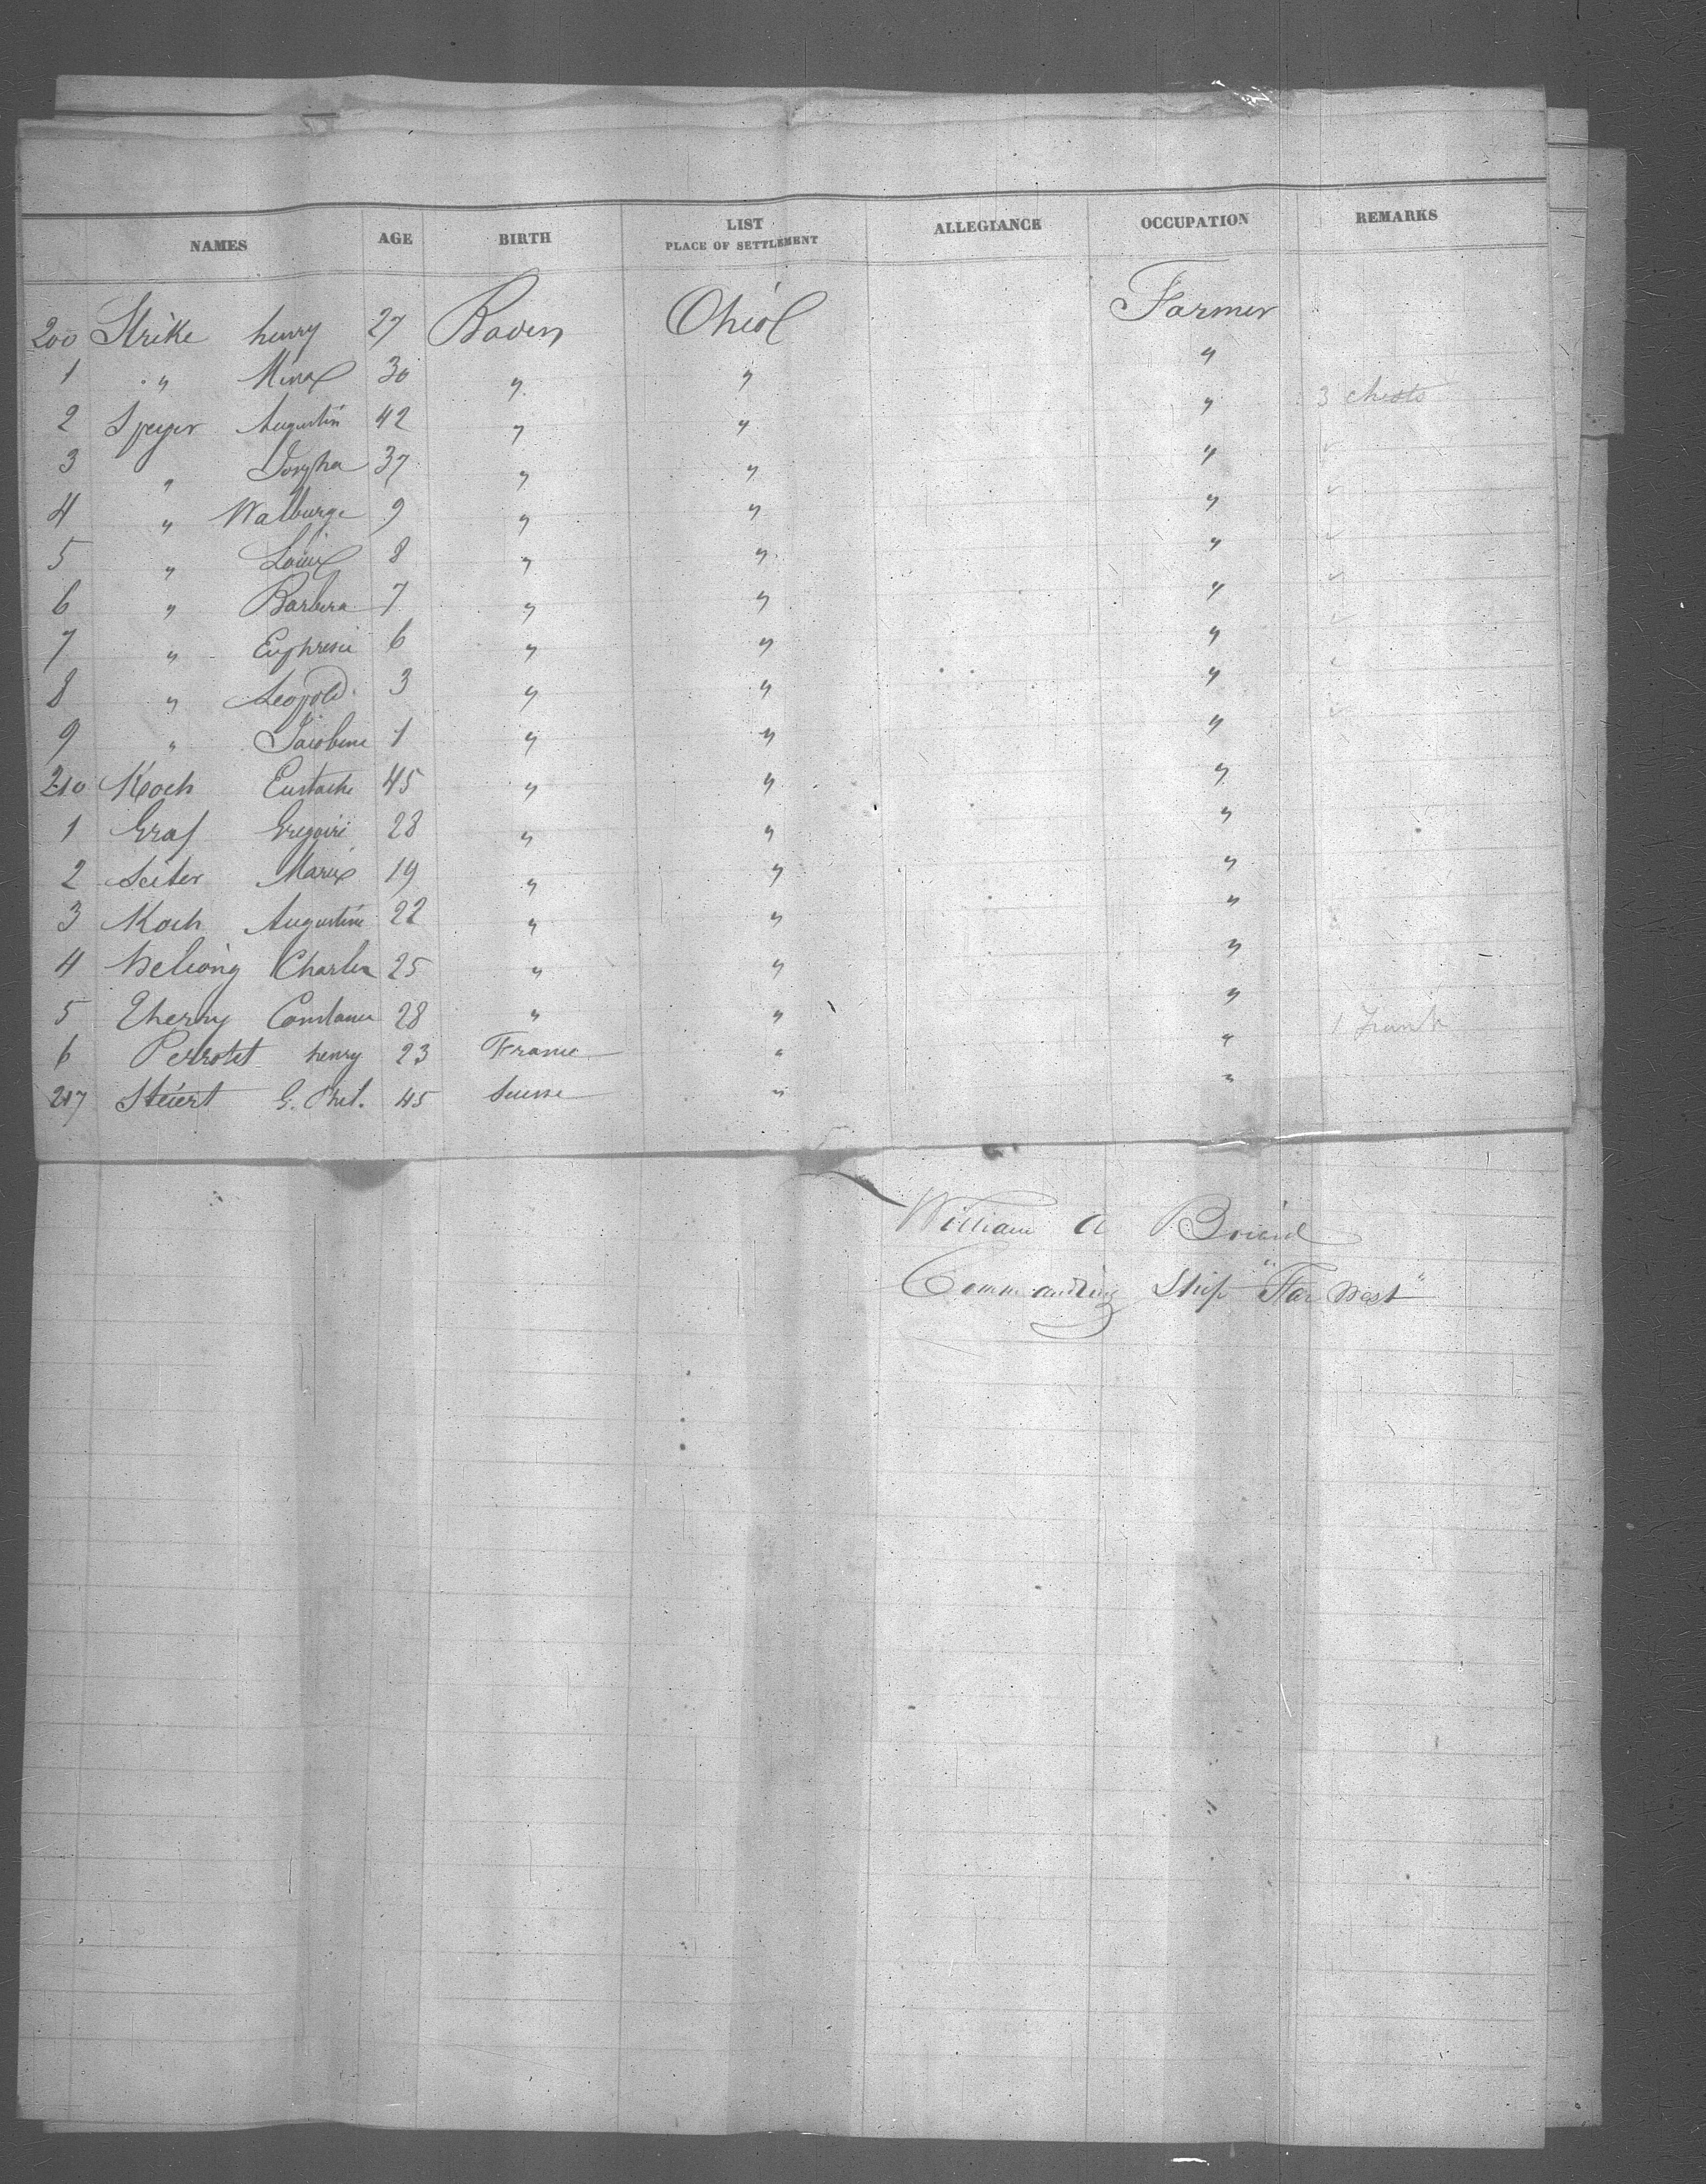 NAMES AGE BIRTH LIST PLACE OF SETTLEMENT ALLEGIANCE OCCUPATION REMARKS
200 Strike henry 27 Baden Ohio Farmer
1 " Mina 30 " " "
2 Speyer Augustin 42 " " " 3 chests
3 " 37 " " "
4 " Walburge 9 " " "
5 " Louise 8 " " "
6 " Barbera 7 " " "
7 " Euphresie 6 " " "
8 " Leopold 3 " " "
9 " Jacobine 1 " " "
210 Koch Eustache 45 " " "
1 Graf Gregoire 28 " " "
2 Seiter Marie 19 " " "
3 Koch Augustine 22 " " "
4 Charles 25 " " "
5 Therry 28 " " "
6 Perrotet henry 23 France " " 1 Trunk
217 Steiert 45 Suisse " "
William A
Commanding Ship "Far West"